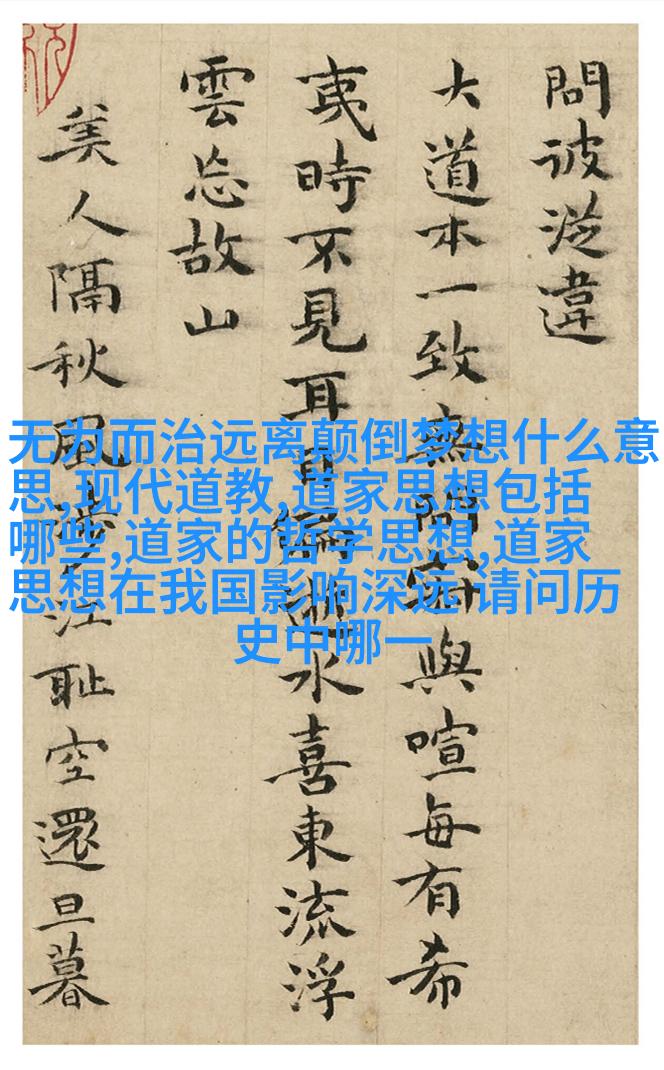 問彼從違
大道本一致無問與喧每有希
夷時不見耳目水喜東流浮
雲忘故山
美人隔秋風江耻空還旦暮
无为而治远离颠倒梦想什么意
思,现代道教,道家思想包括
哪些,道家的哲学思想,道家
思想在我国影响深远 请问历
史中哪一